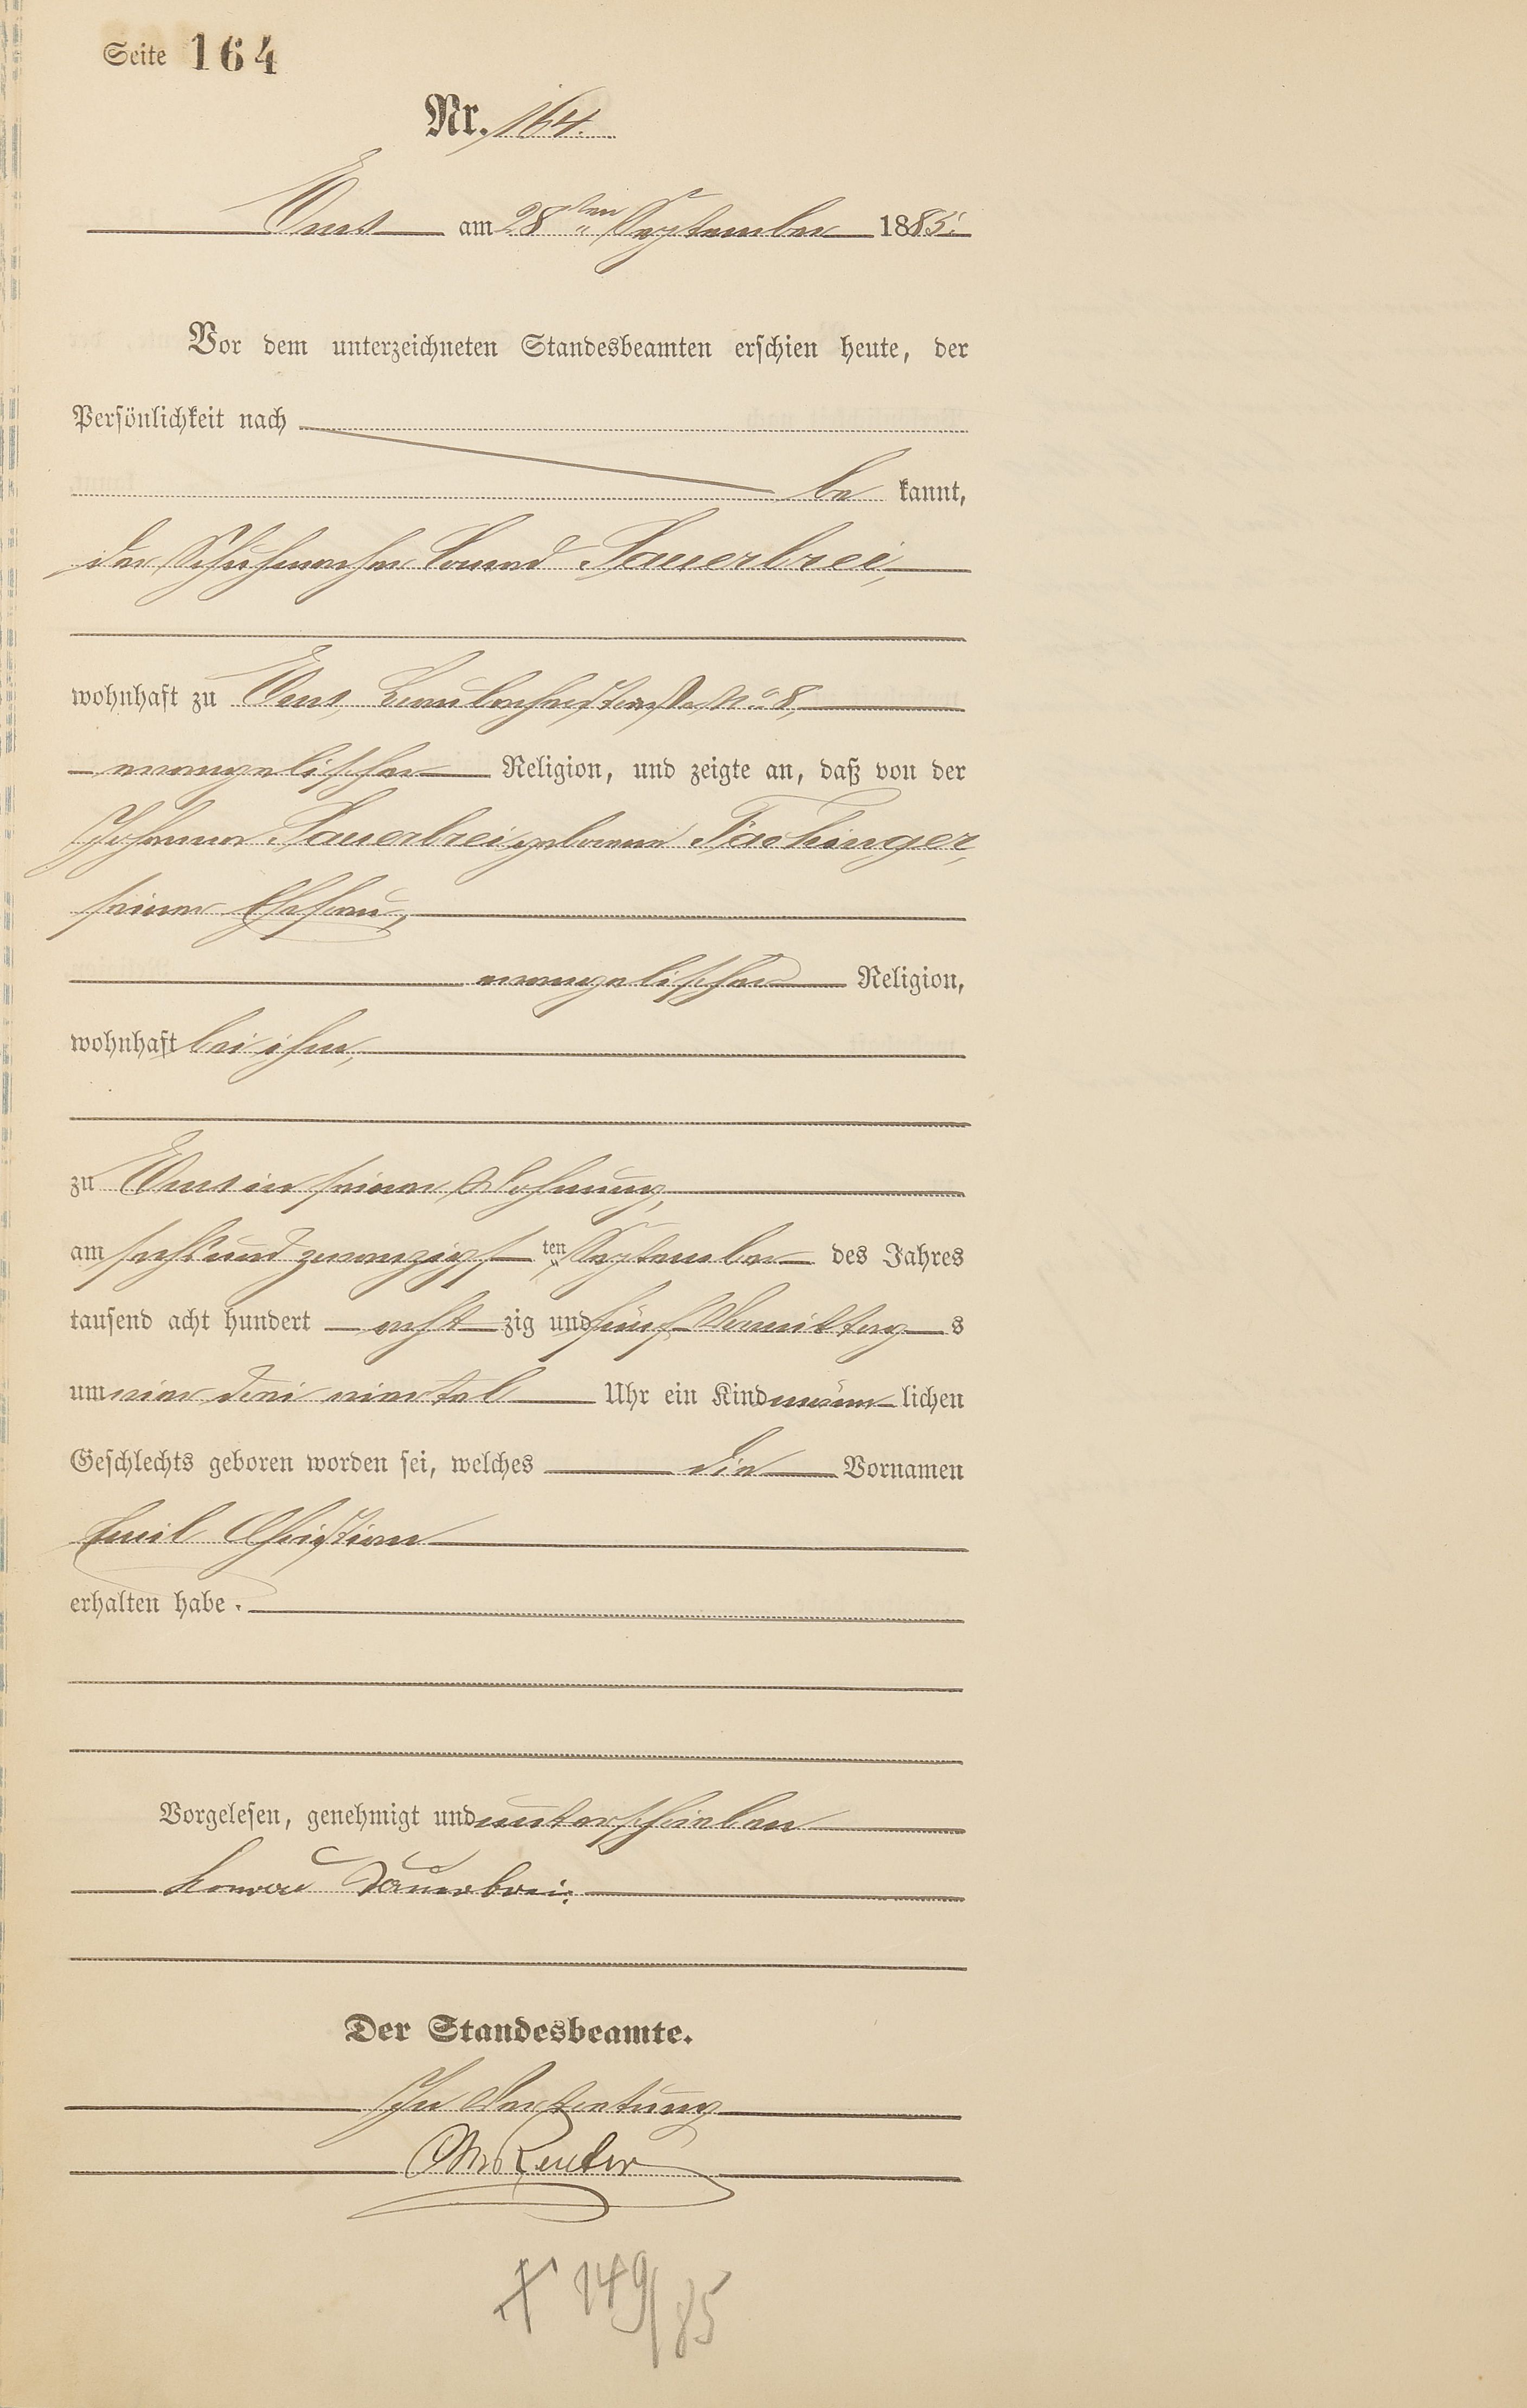 Seite 164
Nr. 164.
Ems am 28ten September 1885.
Vor dem unterzeichneten Standesbeamten erschien heute, der
Persönlichkeit nach
be kannt,
der Schuhmacher Conrad Sauerbrei,
wohnhaft zu Ems, Braubacherstraße No 8,
evangelischer Religion, und zeigte an, daß von der
Johanna Sauerbrei geborene Fachinger,
seiner Ehefrau,
evangelischer Religion,
wohnhaft bei ihm,
zu Ems in seiner Wohnung,
am sechsundzwanzigsten September des Jahres
tausend acht hundert acht zig und fünf Vormittag s
um vier drei viertel Uhr ein Kind männ lichen
Geschlechts geboren worden sei, welches die Vornamen
Emil Christian
erhalten habe.
Vorgelesen, genehmigt und unterschrieben
Konrad Sauerbrei.
Der Standesbeamte.
In Vertretung
Reuter
149/85